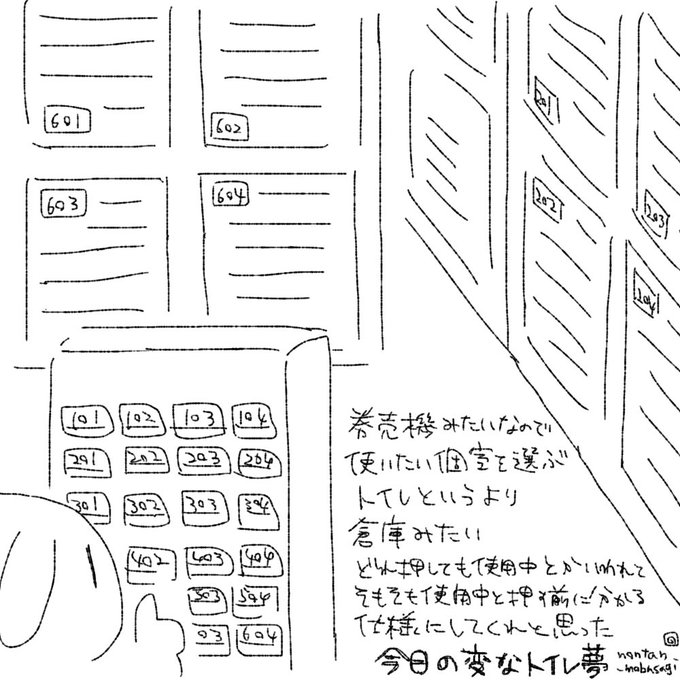 601
602
603
604
201
202
203
204
101 102 103 104
201 202 203 204
301 302 303 304
402 403 404
503 504
03 604
券売機みたいなので
使いたい個室を選ぶ
トイレというより
倉庫みたい
どれ押しても使用中とかいわれて
そもそも使用中と押す前に分かる
仕様にしてくれと思った
今日の変なトイレ夢
nantan
-nobasagi